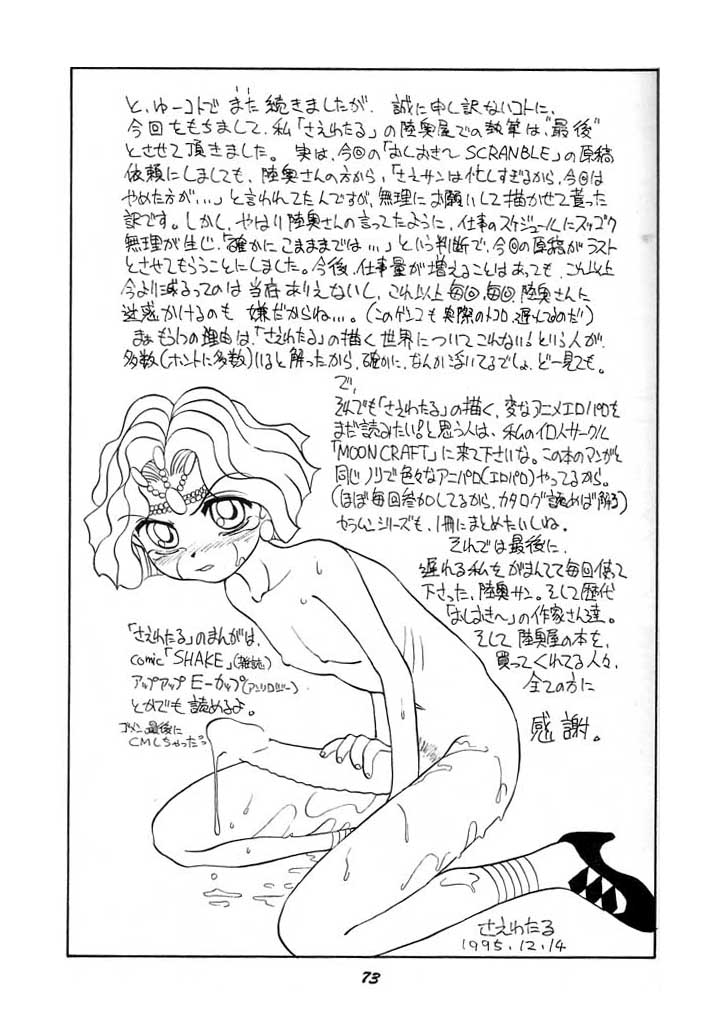 と、ゆーコトでまた続きましたが、誠に申し訳ないコトに、
今回をもちまして、私「さえわたる」の陸奥屋での執筆は"最後"
とさせて頂きました。実は、今回の「おしおき〜SCRANBLE」の原稿
依頼にしましても、陸奥さんの方から、「さえサンは忙しすぎるから、今回は
やめた方が…」と言われてたんですが、無理にお願いして描かせて貰った
訳です。しかし、やはり陸奥さんの言ってたように、仕事のスケジュールにスッゴク
無理が生じ、「確かにこまままでは…」という判断で、今回の原稿がラスト
とさせてもらうことにしました。今後、仕事量が増えることはあっても、これ以上
今より減るってのは当底ありえないし、これ以上毎回、毎回、陸奥さんに
迷惑かけるのも嫌だからね…。(このゲンコも実際のトコロ、遅れてるのだ)
まぁもう1つの理由は、「さえわたる」の描く世界についてこれない!という人が、
多数(ホントに多数)いると解ったから、確かに、なんか浮いてるでしょ、どー見ても。
で、
それでも「さえわたる」の描く、変なアニメエロパロを
まだ読みたい!と思う人は、私の個人サークル
「MOON CRAFT」に来て下さいな。この本のマンガと
同じノリで色々なアニパロ(エロパロ)やってるから。
(ほぼ毎回参加してるから、カタログ読めば解る)
シリーズも、1冊にまとめたいしね。
それでは最後に、
遅れる私をがまんして毎回使って
下さった、陸奥サン。そして歴代
「おしおき〜」の作家さん達。
そして陸奥屋の本を、
買ってくれてる人々、
全ての方に
感謝。
「さえわたる」のまんがは、
comic「SHAKE」(雑誌)
アップアップEーカップ(アンソロジー)
とかでも読めるよ。
ゴメン最後に
CMしちゃったっ
さえわたる
1995.12.14
73